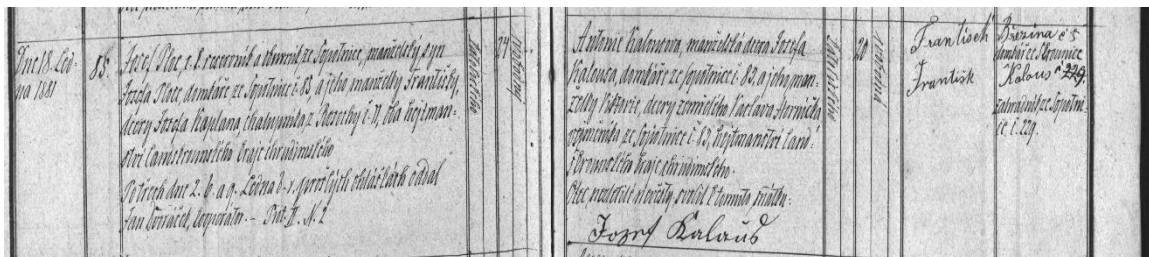 Dne 18. Led-
na 1881
85.
Josef Ptac, c. k. rezervník a obuvník ze Sopotnice, manželský syn
Josefa Ptace, domkáře ze Sopotnice č. 85, a jeho manželky Františky,
dcery Josefa Kaplana, chalupníka z č. 71, oba hejtman-
ství Landškrounského kraje chrudimského
Po třech dne 2. 6. a 9. Ledna d. r. prošlých ohláškách oddal
Jan kooperátor. — Prot. II. N. 2
katolické
24
svobodný
Antonie Kalousova, manželská dcera Josefa
Kalousa, domkáře ze Sopotnice č. 83, a jeho man-
želky Viktorie, dcery zemřelého Václava
ze Sopotnice č. 83, hejtmanství Land-
škrounského kraje chrudimského.
Otec nezletilé nevěsty svolil k tomuto sňatku:
Jozef Kalaus
katolické
20
svobodná
František Brezina č 5
domkář ze
František Kalous č 229.
zahradník ze Sopotni-
ce č. 229.